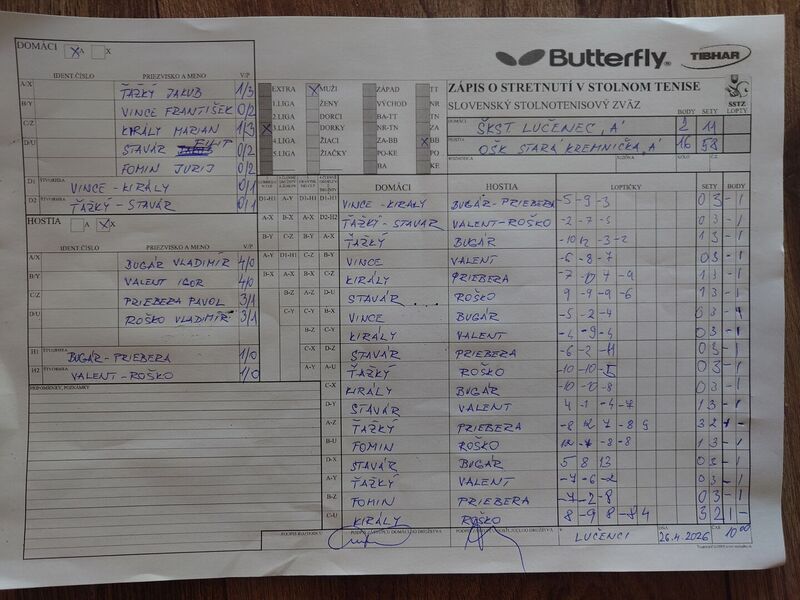 DOMÁCI X A X
IDENT.ČÍSLO PRIEZVISKO A MENO V/P
A/X ŤAŽKÝ JAKUB 1/3
B/Y VINCE FRANTIŠEK 0/2
C/Z KIRÁLY MARIAN 1/3
D/U STAVÁR FILIP 0/2
FOMIN JURIJ 0/2
D1 ŠTVORHRA VINCE - KIRÁLY 0/1
D2 ŤAŽKÝ - STAVÁR 0/1
HOSTIA A X X
IDENT.ČÍSLO PRIEZVISKO A MENO V/P
A/X BUGÁR VLADIMÍR 4/0
B/Y VALENT IGOR 4/0
C/Z PRIEBERA PAVOL 3/1
D/U ROŠKO VLADIMÍR 3/1
H1 ŠTVORHRA BUGÁR - PRIEBERA 1/0
H2 ŠTVORHRA VALENT - ROŠKO 1/0
PRIPOMIENKY, POZNÁMKY
Butterfly TIBHAR
EXTRA X MUŽI ZÁPAD TT
1.LIGA ŽENY VÝCHOD NR
2.LIGA DORCI BA-TT TN
X 3.LIGA DORKY NR-TN ZA
4.LIGA ŽIACI ZA-BB X BB
5.LIGA ŽIAČKY PO-KE PO
BA KE
ZÁPIS O STRETNUTÍ V STOLNOM TENISE
SLOVENSKÝ STOLNOTENISOVÝ ZVÄZ
SSTZ
BODY SETY LOPTY
DOMÁCI ŠKST LUČENEC „A" 2 11
HOSTIA OŠK STARÁ KREMNIČKA „A" 16 58
DOMÁCI HOSTIA LOPTIČKY SETY BODY
VINCE - KIRÁLY BUGÁR - PRIEBERA -5 -9 -3 0 3 - 1
ŤAŽKÝ - STAVÁR VALENT - ROŠKO -2 -7 -5 0 3 - 1
ŤAŽKÝ BUGÁR -10 12 -3 -2 1 3 - 1
VINCE VALENT -6 -8 -7 0 3 - 1
KIRÁLY PRIEBERA -7 -10 7 -9 1 3 - 1
STAVÁR ROŠKO 9 -9 -9 -6 1 3 - 1
VINCE BUGÁR -5 -2 -4 0 3 - 1
KIRÁLY VALENT -4 -9 -4 0 3 - 1
STAVÁR PRIEBERA -6 -2 -11 0 3 - 1
ŤAŽKÝ ROŠKO -10 -10 -5 0 3 - 1
KIRÁLY BUGÁR -10 -10 -8 0 3 - 1
STAVÁR VALENT 4 -1 -4 -7 1 3 - 1
ŤAŽKÝ PRIEBERA -8 12 7 -8 9 3 2 1 -
FOMIN ROŠKO 12 -7 -8 -8 1 3 - 1
STAVÁR BUGÁR 5 8 13 0 3 - 1
ŤAŽKÝ VALENT -7 -6 -2 0 3 - 1
FOMIN PRIEBERA -7 -2 -8 0 3 - 1
KIRÁLY ROŠKO 8 -9 8 -8 4 3 2 1 -
PODPIS ROZHODCU
V LUČENCI DŇA 26.4.2026 ČAS 10:00